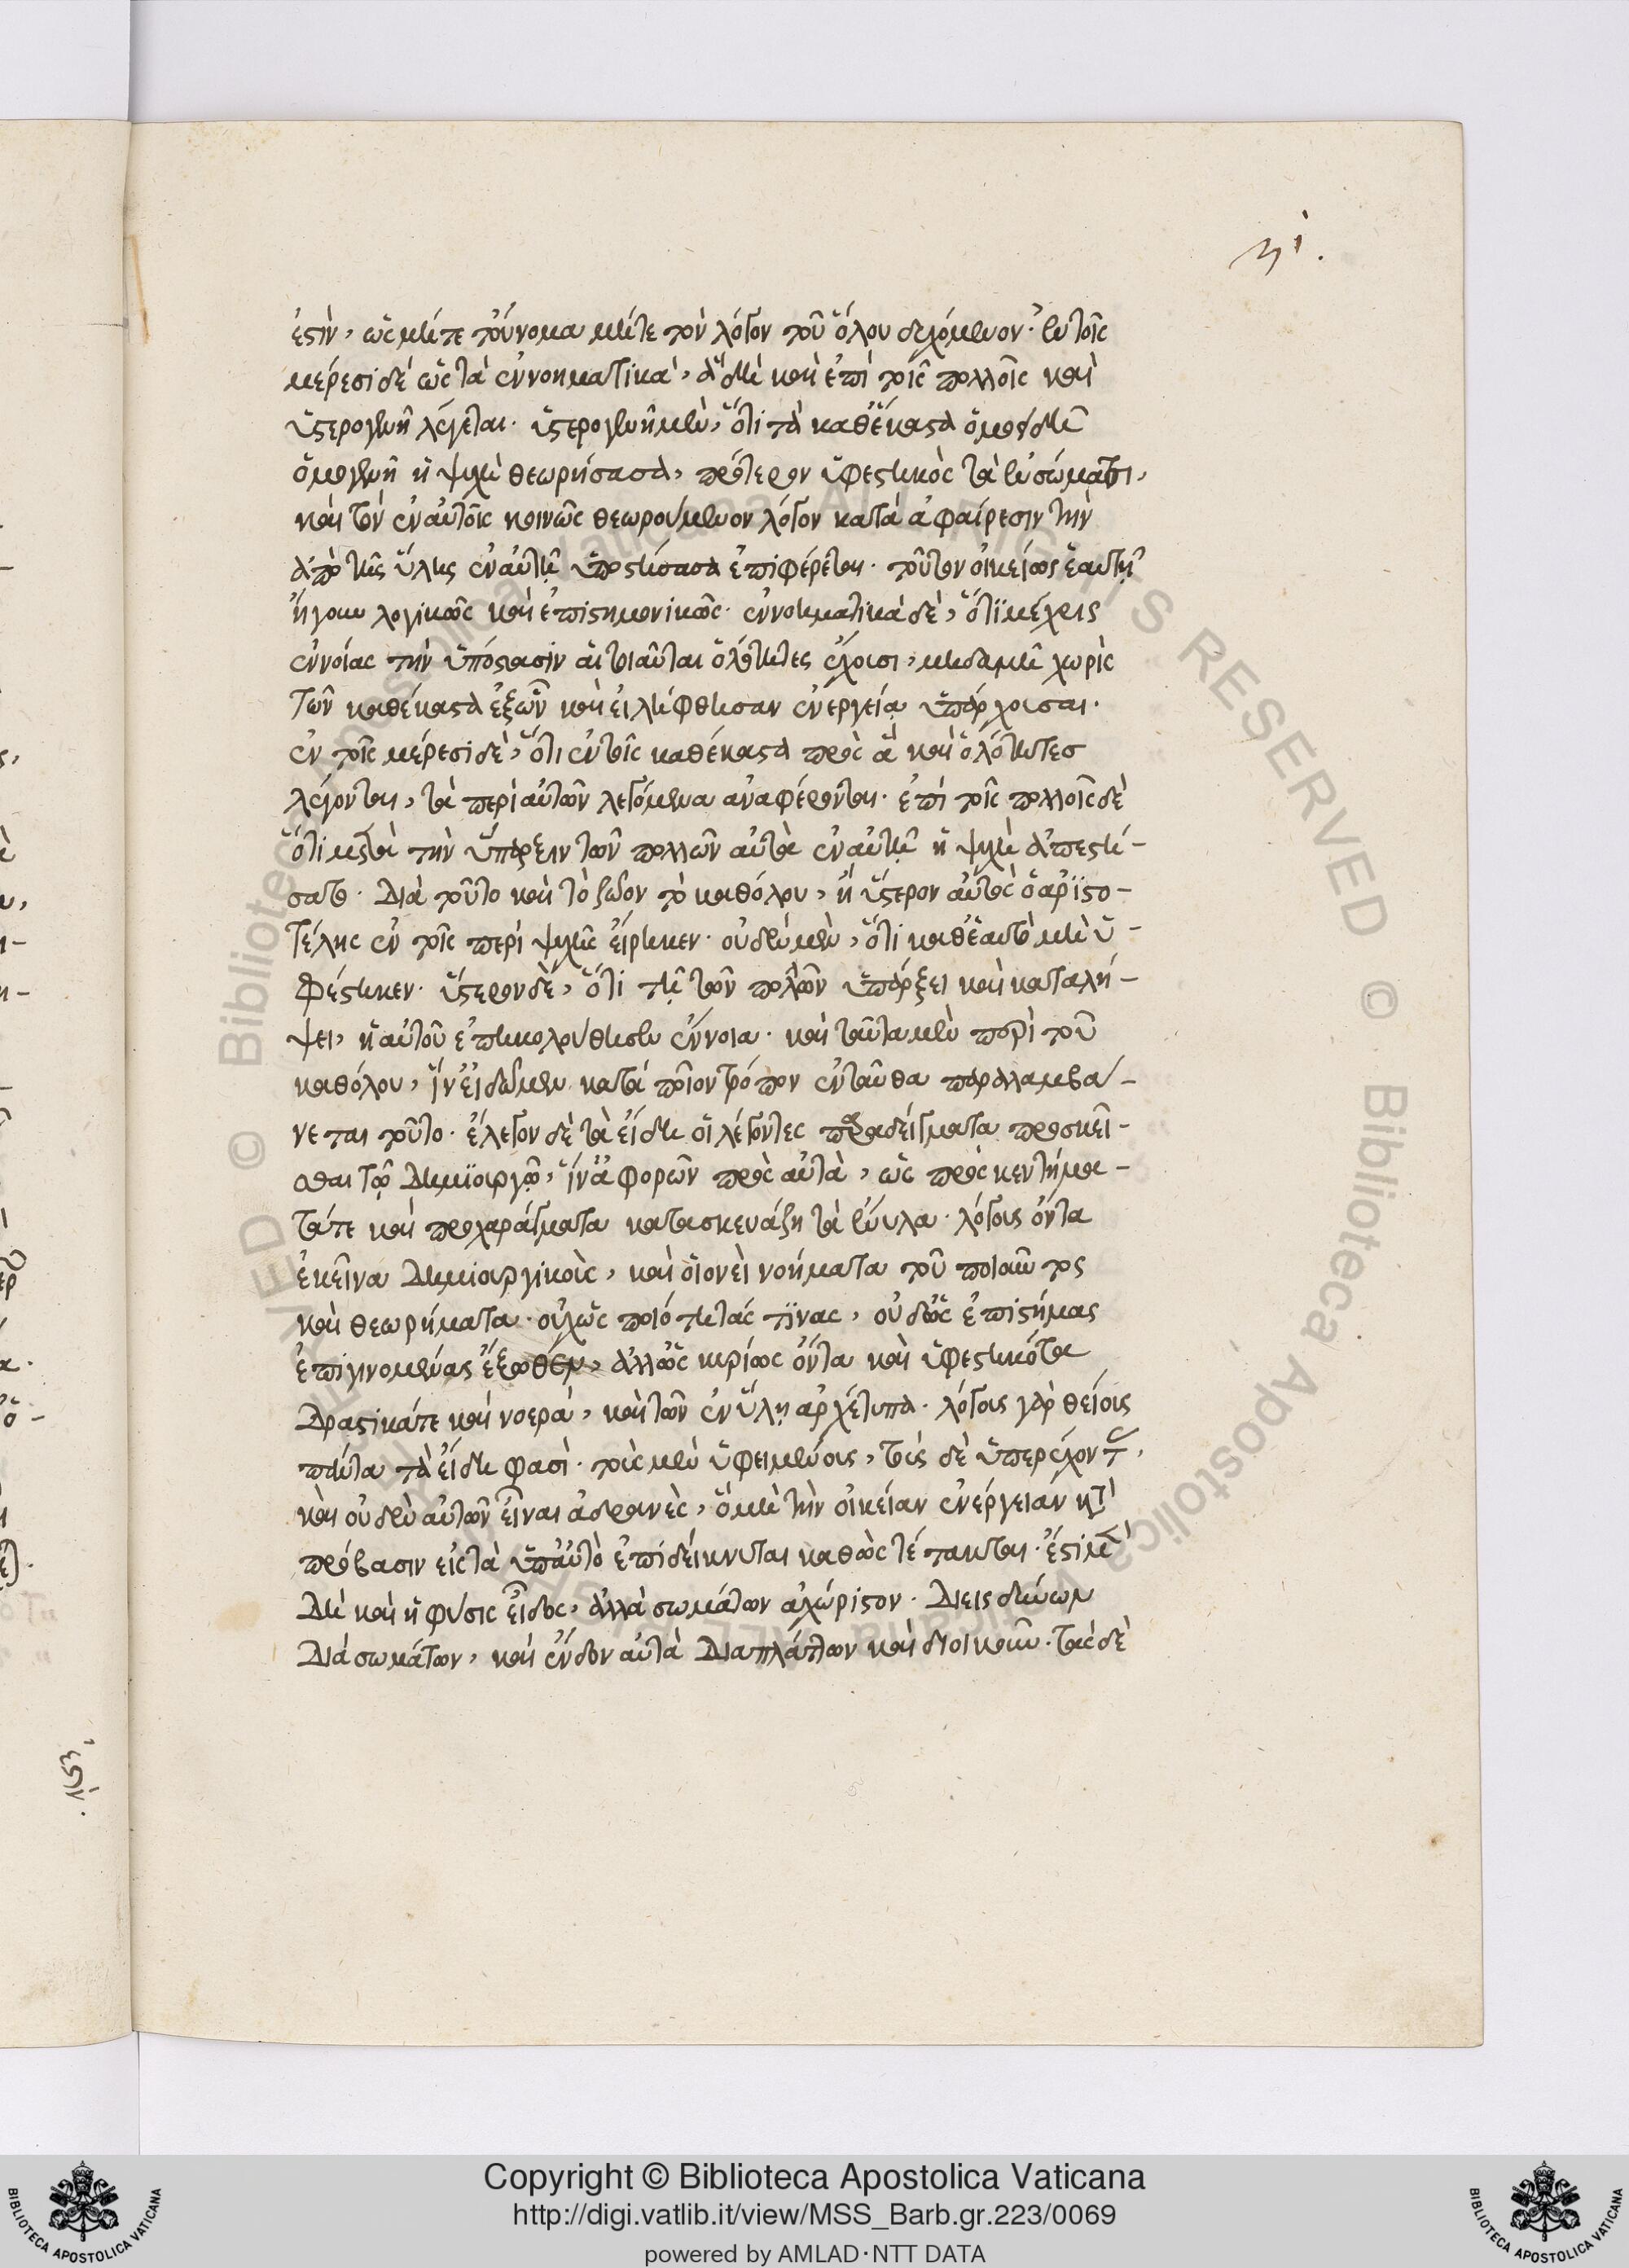 ἐστὶν, ὡς μήτε τοὔνομα μήτε τὸν λόγον τοῦ ὅλου δεχόμενον. ἐν τοῖς
μέρεσι δὲ ὡς τὰ ἐννοηματικὰ, ἃ δὴ καὶ ἐπὶ τοῖς πολλοῖς καὶ
ὑστερογενῆ λέγεται. ὑστερογενῆ μὲν, ὅτι τὰ καθέκαστα ὁμοειδῆ
ὁμογενῆ ἡ ψυχὴ θεωρήσασα, πρότερον ὑφεστηκὸς τὰ ἐν σώματι,
καὶ τὸν ἐν αὐτοῖς κοινῶς θεωρούμενον λόγον κατὰ ἀφαίρεσιν τὴν
ἀπὸ τῆς ὕλης ἐν αὐτῇ ὑποστήσασα ἐπιφέρεται. τοῦτον οἰκείως ἑαυτῇ
ἤγουν λογικῶς καὶ ἐπιστημονικῶς. ἐννοηματικὰ δὲ, ὅτι μέχρις
ἐννοίας τὴν ὑπόστασιν αἱ τοιαῦται ὁλότητες ἔχουσι, μηδαμῆ χωρὶς
τῶν καθέκαστα ἐξ ὧν καὶ εἰλήφθησαν ἐνεργείᾳ ὑπάρχουσαι.
ἐν τοῖς μέρεσι δὲ, ὅτι ἐν τοῖς καθέκαστα πρὸς ἃ καὶ ὁλότητες
λέγονται, τὰ περὶ αὐτῶν λεγόμενα ἀναφέρονται. ἐπὶ τοῖς πολλοῖς δὲ
ὅτι μετὰ τὴν ὕπαρξιν τῶν πολλῶν αὐτὰ ἐν αὐτῇ ἡ ψυχὴ ἀπεστή-
σατο. Διὰ τοῦτο καὶ τὸ ζῶον τὸ καθόλου, ἢ ὕστερον αὐτὸς ὁ ἀρϊστο-
τέλης ἐν τοῖς περὶ ψυχῆς εἴρηκεν. οὐδὲν μὲν, ὅτι καθ' ἑαυτὸ μὴ ὑ-
φέστηκεν. ὕστερον δὲ, ὅτι τῇ τῶν πολλῶν ὑπάρξει καὶ καταλή-
ψει, ἡ αὐτοῦ ἐπηκολούθησεν ἔννοια. καὶ ταῦτα μὲν περὶ τοῦ
καθόλου, ἵν' εἰδῶμεν κατὰ ποῖον τρόπον ἐνταῦθα παραλαμβά-
νεται τοῦτο. ἔλεγον δὲ τὰ εἴδη οἱ λέγοντες παραδείγματα προσκεῖ-
σθαι τῷ Δημϊουργῷ, ἵν' ἀφορῶν πρὸς αὐτὰ, ὡς πρὸς κεντήμα-
τά τε καὶ προχαράγματα κατασκευάζῃ τὰ ἔνυλα. λόγους ὄντα
ἐκεῖνα Δημιουργικοὺς, καὶ οἱονεὶ νοήματα τοῦ ποιοῦντος
καὶ θεωρήματα. οὐχ ὡς ποιότητάς τϊνας, οὐδ' ὡς ἐπιστήμας
ἐπιγινομένας ἔξωθεν, ἀλλ' ὡς κυρίως ὄντα καὶ ὑφεστηκότα
Δραστικά τε καὶ νοερὰ, καὶ τῶν ἐν ὕλῃ ἀρχέτυπα. λόγους γὰρ θείους
πάντα τὰ εἴδη φασὶ. τοὺς μὲν ὑφειμένους, τοὺς δὲ ὑπερέχοντας,
καὶ οὐδὲν αὐτῶν εἶναι ἀδρανὲς, ὃ μὴ τὴν οἰκείαν ἐνέργειαν κατὰ
πρόβασιν εἰς τὰ ὑπ' αὐτὸ ἐπιδείκνυται καθὼς τέτακται. ἔστι μὲν
Δὴ καὶ ἡ φύσις εἶδος, ἀλλὰ σωμάτων ἀχώριστον. Διεις δῦνων
Διὰ σωμάτων, καὶ ἔνδον αὐτὰ Διαπλάττων καὶ διοικοῦν. τὰς δὲ
Copyright © Biblioteca Apostolica Vaticana
http://digi.vatlib.it/view/MSS_Barb.gr.223/0069
powered by AMLAD·NTT DATA